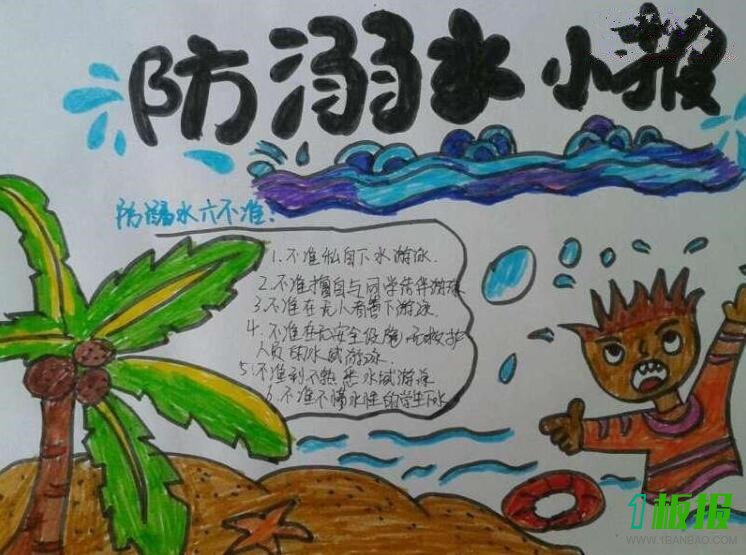 防溺水小报
防溺水六不准:
1.不准私自下水游泳.
2.不准擅自与同学结伴游泳
3.不准在无人看管下游泳.
4.不准在无安全设施,无救护
人员的水域游泳.
5.不准到不熟悉水域游泳
6.不准不懂水性的学生下水
1板报
WWW.1BANBAO.COM